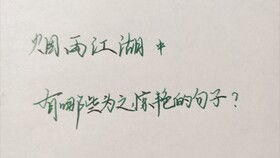 烟雨江湖中
有哪些为之惊艳的句子？